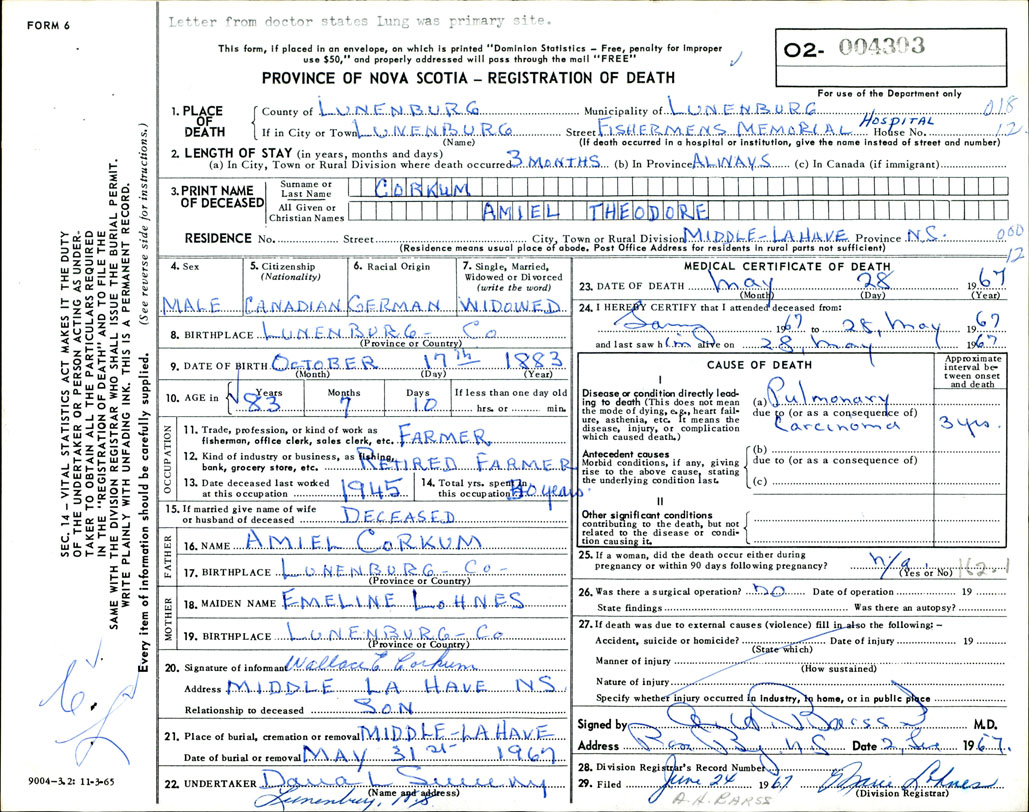 FORM 6
Letter from doctor states lung was primary site.
This form, if placed in an envelope, on which is printed "Dominion Statistics – Free, penalty for improper
use $50," and properly addressed will pass through the mail "FREE"
PROVINCE OF NOVA SCOTIA – REGISTRATION OF DEATH
O2- 004303
For use of the Department only
1. PLACE OF DEATH County of LUNENBURG Municipality of LUNENBURG 018
If in City or Town LUNENBURG Street FISHERMENS MEMORIAL HOSPITAL House No. 12
(Name) (If death occurred in a hospital or institution, give the name instead of street and number)
2. LENGTH OF STAY (in years, months and days)
(a) In City, Town or Rural Division where death occurred 3 MONTHS (b) In Province ALWAYS (c) In Canada (if immigrant)
3. PRINT NAME OF DECEASED Surname or Last Name CORKUM
All Given or Christian Names AMIEL THEODORE
RESIDENCE No. Street City, Town or Rural Division MIDDLE-LAHAVE Province N.S. 000
(Residence means usual place of abode. Post Office Address for residents in rural parts not sufficient) 12
4. Sex MALE
5. Citizenship (Nationality) CANADIAN
6. Racial Origin GERMAN
7. Single, Married, Widowed or Divorced (write the word) WIDOWED
8. BIRTHPLACE LUNENBURG – Co
(Province or Country)
9. DATE OF BIRTH OCTOBER 17th 1883
(Month) (Day) (Year)
10. AGE in Years 83 Months 7 Days 10 If less than one day old hrs. or min.
OCCUPATION
11. Trade, profession, or kind of work as fisherman, office clerk, sales clerk, etc. FARMER
12. Kind of industry or business, as fishing, bank, grocery store, etc. RETIRED FARMER
13. Date deceased last worked at this occupation 1945
14. Total yrs. spent in this occupation years.
15. If married give name of wife or husband of deceased DECEASED
FATHER
16. NAME AMIEL CORKUM
17. BIRTHPLACE LUNENBURG – Co –
(Province or Country)
MOTHER
18. MAIDEN NAME EMELINE LOHNES
19. BIRTHPLACE LUNENBURG – Co
(Province or Country)
20. Signature of informant Wallace E Corkum
Address MIDDLE LA HAVE NS
Relationship to deceased SON
21. Place of burial, cremation or removal MIDDLE-LAHAVE
Date of burial or removal MAY 31st 1967
22. UNDERTAKER Dana L Sweeny
(Name and address)
Lunenburg, N.S
MEDICAL CERTIFICATE OF DEATH
23. DATE OF DEATH May 28 1967
(Month) (Day) (Year)
24. I HEREBY CERTIFY that I attended deceased from:
1967 to 28, May 1967
and last saw him alive on 28, May 1967
CAUSE OF DEATH
Approximate interval between onset and death
I
Disease or condition directly leading to death (This does not mean the mode of dying, e.g., heart failure, asthenia, etc. It means the disease, injury, or complication which caused death.)
(a) Pulmonary
due to (or as a consequence of)
Carcinoma 3 yrs.
Antecedent causes
Morbid conditions, if any, giving rise to the above cause, stating the underlying condition last.
(b)
due to (or as a consequence of)
(c)
II
Other significant conditions
contributing to the death, but not related to the disease or condition causing it.
25. If a woman, did the death occur either during
pregnancy or within 90 days following pregnancy? n/a.
(Yes or No) 162-1
26. Was there a surgical operation? no Date of operation 19
State findings Was there an autopsy?
27. If death was due to external causes (violence) fill in also the following: –
Accident, suicide or homicide? Date of injury 19
(State which)
Manner of injury
(How sustained)
Nature of injury
Specify whether injury occurred in industry, in home, or in public place
Signed by M.D.
Address N.S Date 1967.
28. Division Registrar's Record Number
29. Filed June 24 1967 Lohnes
(Division Registrar)
A. H. BARSS
SEC. 14 – VITAL STATISTICS ACT MAKES IT THE DUTY
OF THE UNDERTAKER OR PERSON ACTING AS UNDER-
TAKER TO OBTAIN ALL THE PARTICULARS REQUIRED
IN THE "REGISTRATION OF DEATH" AND TO FILE THE
SAME WITH THE DIVISION REGISTRAR WHO SHALL ISSUE THE BURIAL PERMIT.
WRITE PLAINLY WITH UNFADING INK. THIS IS A PERMANENT RECORD.
Every item of information should be carefully supplied. (See reverse side for instructions.)
9004-3.2: 11-3-65